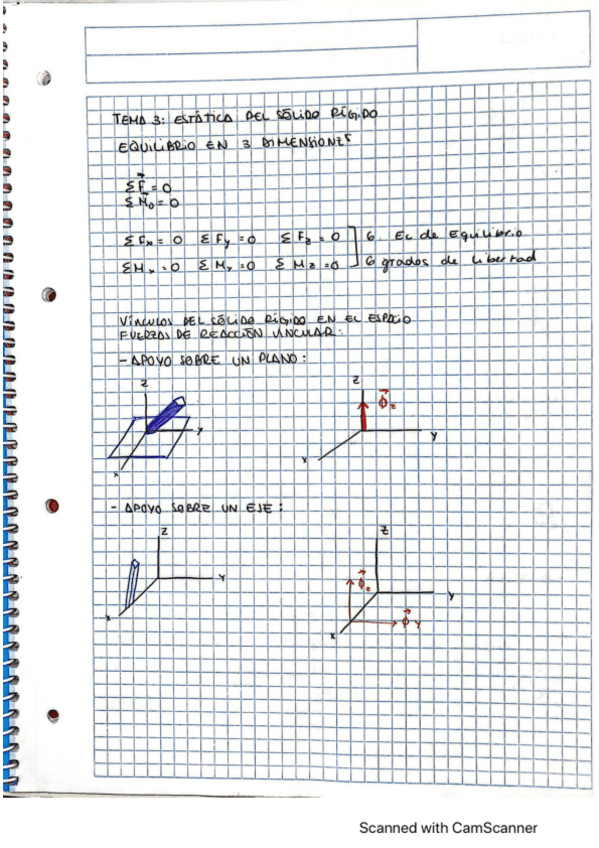 TEMA 3: ESTÁTICA DEL SÓLIDO RÍGIDO
EQUILIBRIO EN 3 DIMENSIONES
Σ F⃗ = 0
Σ M⃗₀ = 0
Σ Fx = 0 Σ Fy = 0 Σ Fz = 0 ] 6 Ec de Equilibrio
Σ Mx = 0 Σ My = 0 Σ Mz = 0 ] 6 grados de libertad
VÍNCULOS DEL SÓLIDO RÍGIDO EN EL ESPACIO
FUERZAS DE REACCIÓN VINCULAR:
- APOYO SOBRE UN PLANO:
Z Z ϕ⃗z
Y Y
X X
- APOYO SOBRE UN EJE:
Z Z
Y ϕ⃗z Y
X ϕ⃗y
X
Scanned with CamScanner